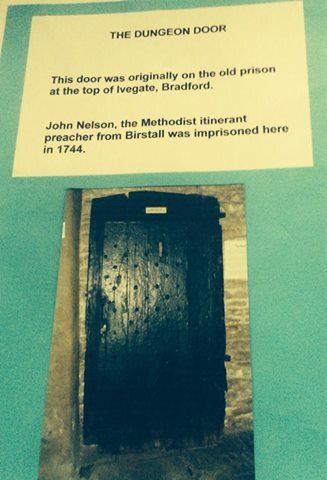 THE DUNGEON DOOR
This door was originally on the old prison
at the top of Ivegate, Bradford.
John Nelson, the Methodist itinerant
preacher from Birstall was imprisoned here
in 1744.